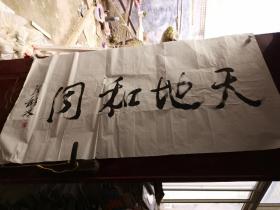 天地和同